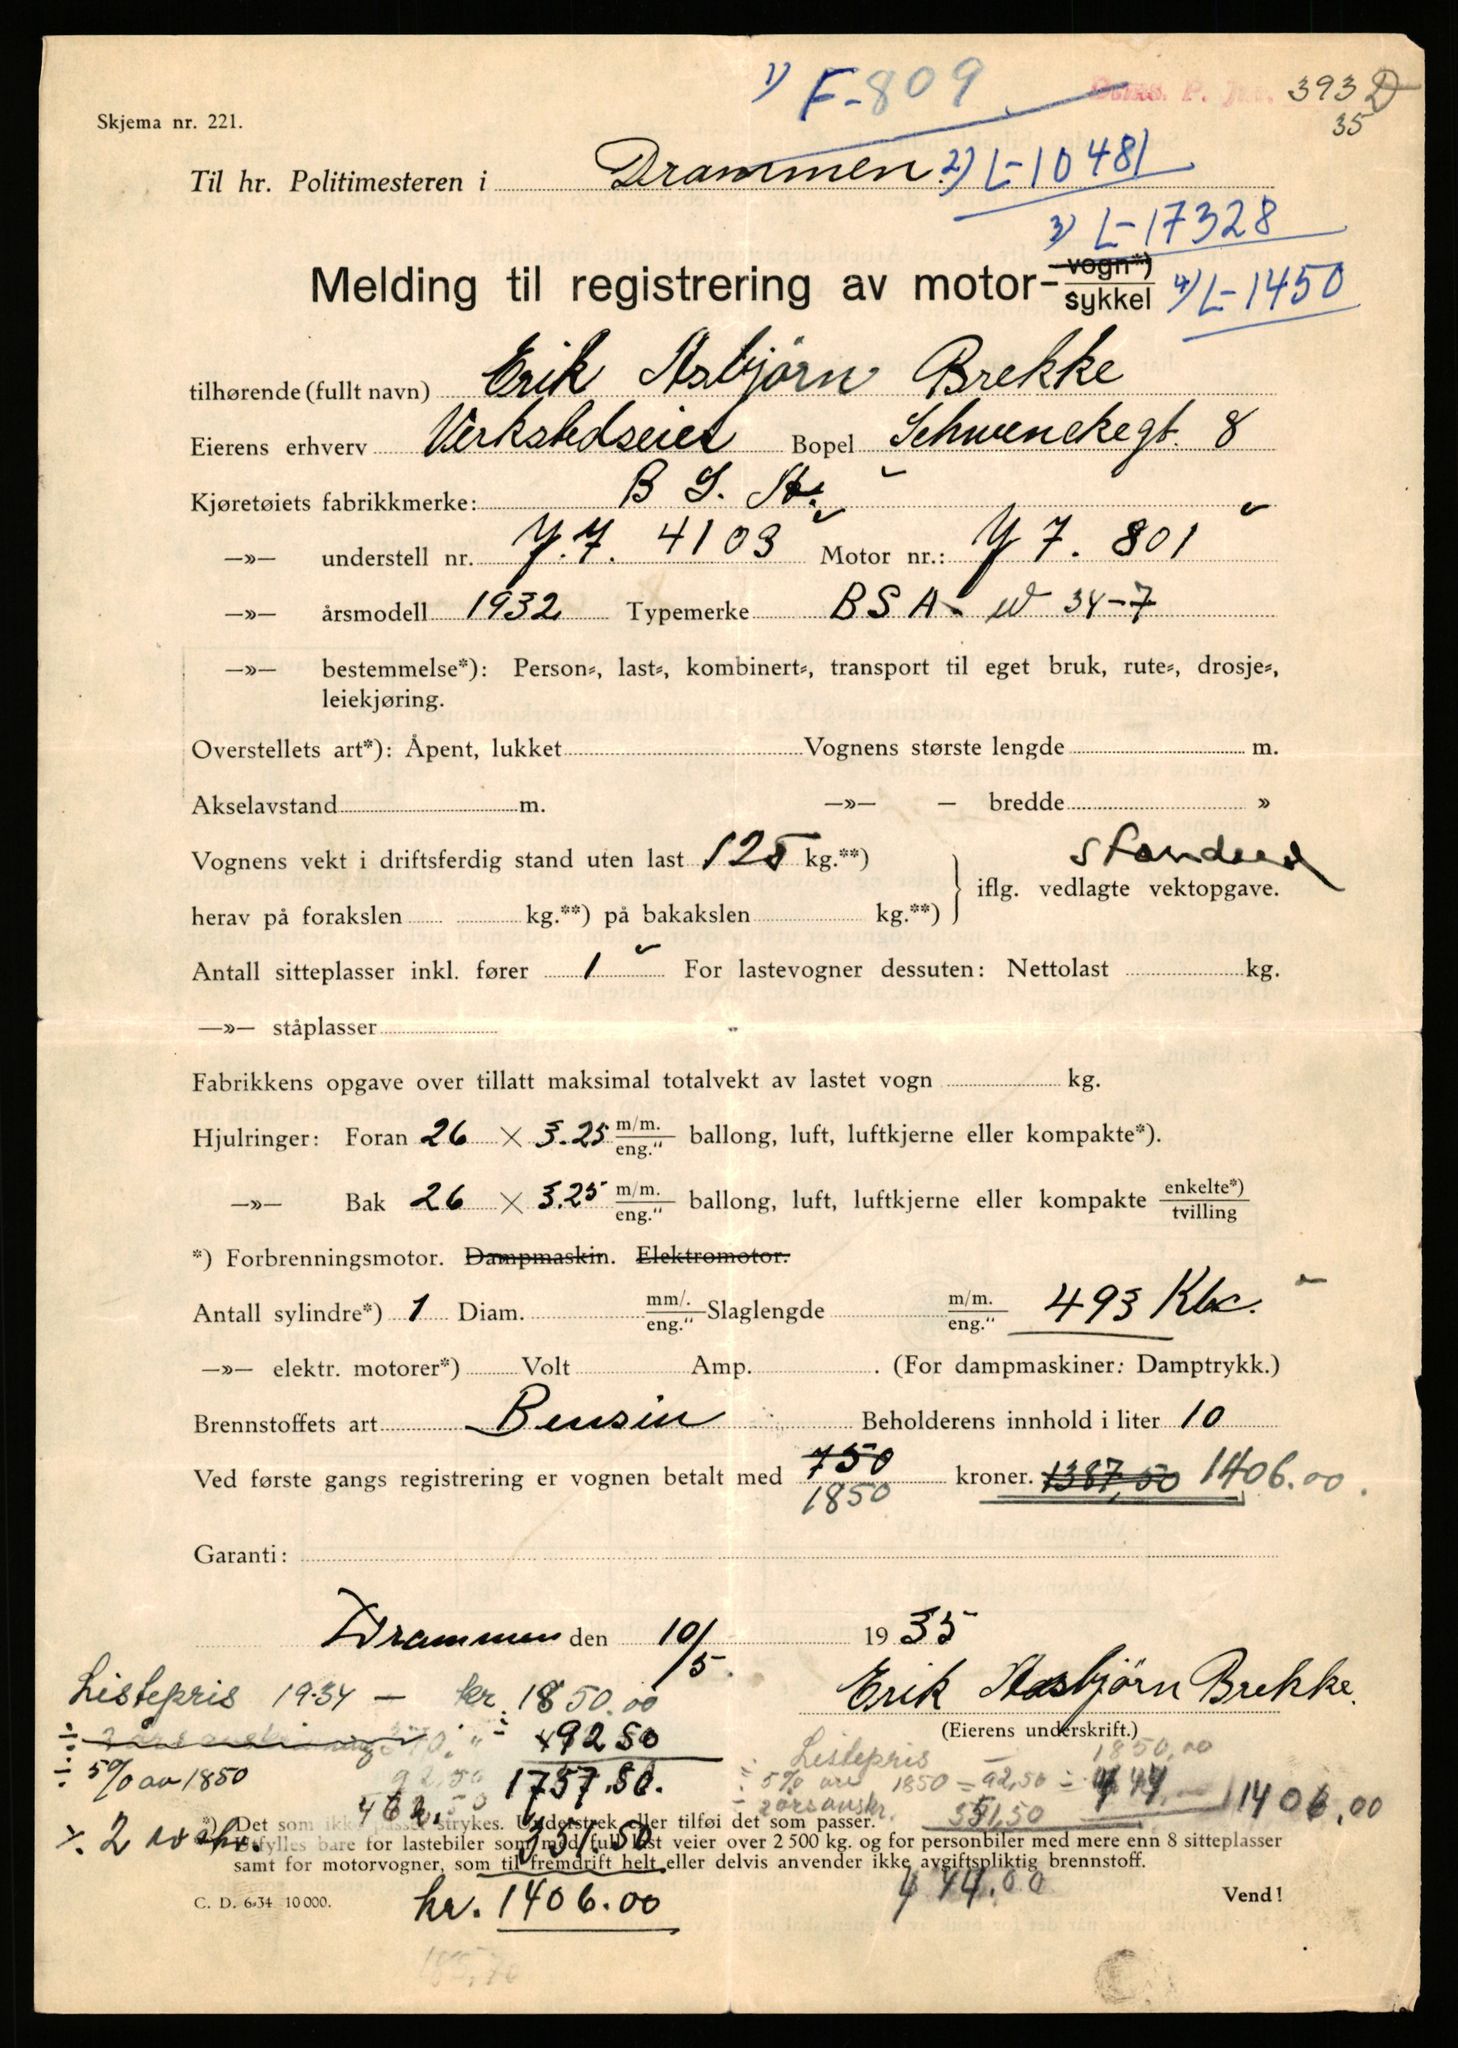 1) F-809
393 D
35
Skjema nr. 221.
Til hr. Politimesteren i Drammen. 2) L-10481
3) L-17328
Melding til registrering av motor- vogn*) sykkel 4) L-1450
tilhørende (fullt navn) Erik Asbjørn Brekke
Eierens erhverv Verkstedseier Bopel Schwenckegt. 8
Kjøretøiets fabrikkmerke: B S. A.
—»— understell nr. Y.7. 4103 Motor nr.: Y 7. 801
—»— årsmodell 1932 Typemerke BSA - W 34-7
—»— bestemmelse*): Person-, last-, kombinert-, transport til eget bruk, rute-, drosje-,
leiekjøring.
Overstellets art*): Åpent, lukket Vognens største lengde m.
Akselavstand m. —»— — bredde »
Vognens vekt i driftsferdig stand uten last 125 kg.**) standard
iflg. vedlagte vektopgave.
herav på forakslen kg.**) på bakakslen kg.**)
Antall sitteplasser inkl. fører 1 For lastevogner dessuten: Nettolast kg.
—»— ståplasser
Fabrikkens opgave over tillatt maksimal totalvekt av lastet vogn kg.
Hjulringer: Foran 26 × 3.25 m/m. eng." ballong, luft, luftkjerne eller kompakte*).
—»— Bak 26 × 3.25 m/m. eng." ballong, luft, luftkjerne eller kompakte enkelte*) tvilling
*) Forbrenningsmotor. Dampmaskin. Elektromotor.
Antall sylindre*) 1 Diam. mm/. eng." Slaglengde m/m. eng." 493 Kbc.
—»— elektr. motorer*) Volt Amp. . (For dampmaskiner: Damptrykk.)
Brennstoffets art Bensin Beholderens innhold i liter 10
Ved første gangs registrering er vognen betalt med 750 kroner. 1387,50 1406.00.
1850
Garanti:
Drammen den 10/5. 1935
Listepris 1934 — kr. 1850.00
Erik Asbjørn Brekke.
(Eierens underskrift.)
÷ 92 50
Listepris — 1850,00
÷ 5% av 1850 92,50 1757.50.
÷ 5% av 1850 = 92,50 ÷ 444 — 1406,00
- 2 årsavskr. 351,50
*) Det som ikke passer strykes. Understrek eller tilføi det som passer.
÷ 2 351.50
Utfylles bare for lastebiler som med full last veier over 2 500 kg. og for personbiler med mere enn 8 sitteplasser
samt for motorvogner, som til fremdrift helt eller delvis anvender ikke avgiftspliktig brennstoff.
444.00
C. D. 6-34 10 000. kr. 1406.00 Vend!